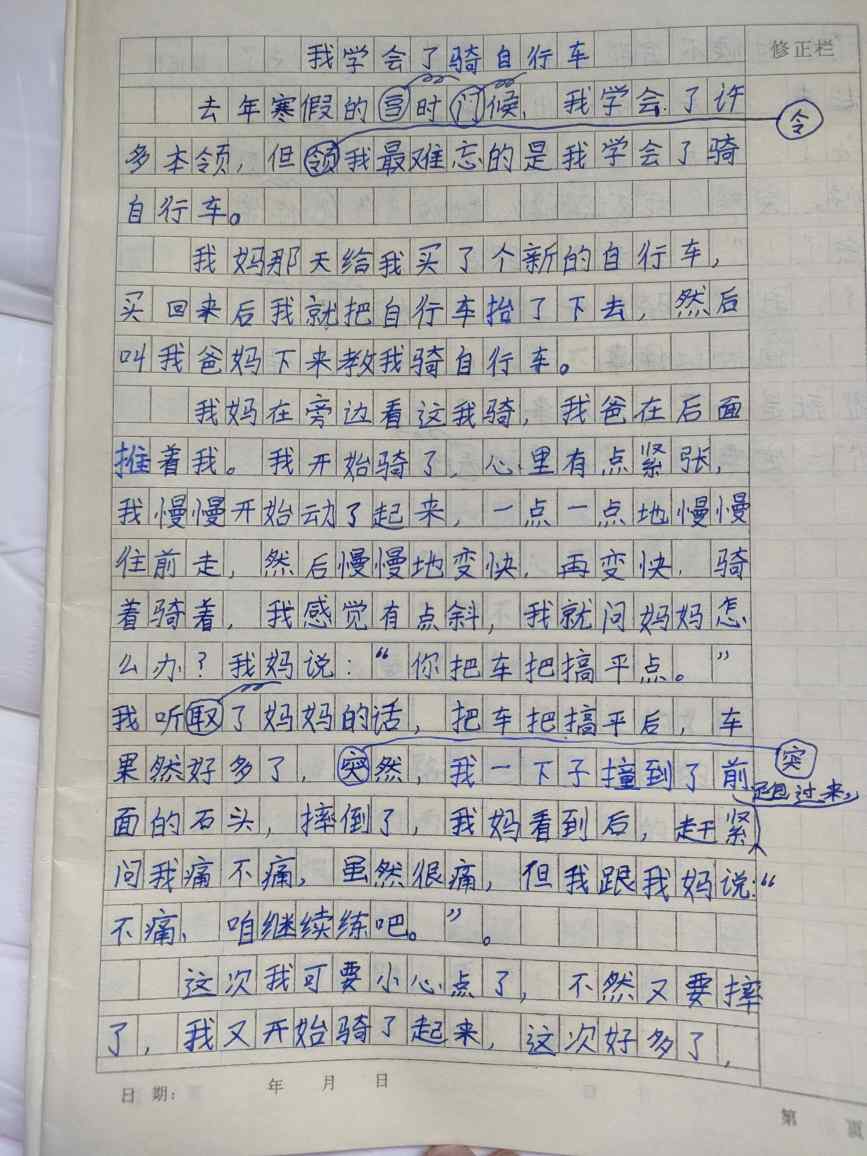 我学会了骑自行车
修正栏
去年寒假的时候，我学会了许
令
多本领，但领我最难忘的是我学会了骑
自行车。
我妈那天给我买了个新的自行车，
买回来后我就把自行车抬了下去，然后
叫我爸妈下来教我骑自行车。
我妈在旁边看这我骑，我爸在后面
推着我。我开始骑了，心里有点紧张，
我慢慢开始动了起来，一点一点地慢慢
往前走，然后慢慢地变快，再变快，骑
着骑着，我感觉有点斜，我就问妈妈怎
么办？我妈说：“你把车把搞平点。”
我听取了妈妈的话，把车把搞平后，车
果然好多了，突然，我一下子撞到了前
突
跑过来，
面的石头，摔倒了，我妈看到后，赶紧
问我痛不痛，虽然很痛，但我跟我妈说：“
不痛、咱继续练吧。”。
这次我可要小心点了，不然又要摔
了，我又开始骑了起来，这次好多了，
日期： 年 月 日
第 页